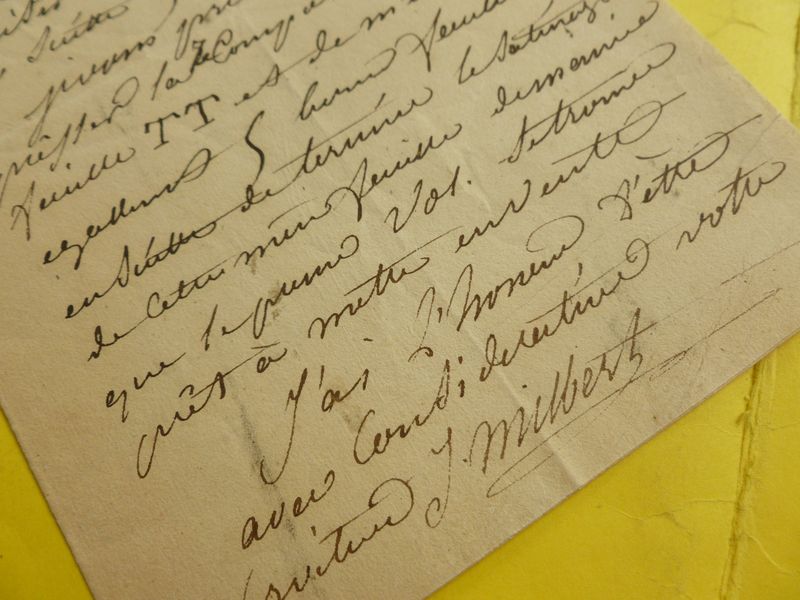 suitte
presser la 7e Comp
feuille TT et de m
egallement 5 bonne feuille
en suitte de terminer le satinage
de cette meme feuille de maniere
que le premier Vol. se trouve
prêt à mettre en vente
J'ai l'honneur d'être
avec Consideration votre
serviteur J. Milbert